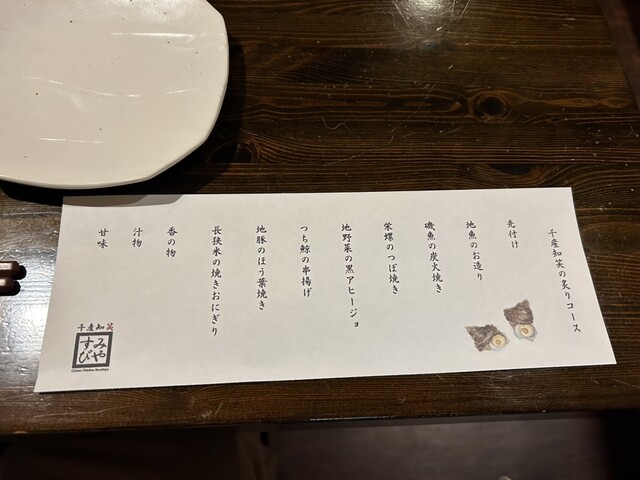 千産知笑の炙りコース
先付け
地魚のお造り
磯魚の炭火焼き
栄螺のつぼ焼き
地野菜の黒アヒージョ
つち鯨の串揚げ
地豚のほう葉焼き
長狭米の焼きおにぎり
香の物
汁物
甘味
千産知笑
すみびや